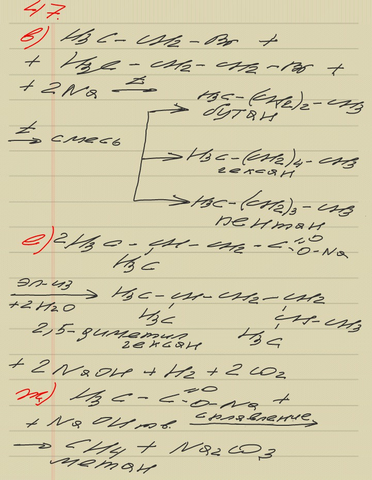 47.
в) H3C-CH2-Br +
+ H3C-CH2-CH2-Br +
+ 2Na t→
H3C-(CH2)2-CH3
бутан
t→ смесь
H3C-(CH2)4-CH3
гексан
H3C-(CH2)3-CH3
пентан
е) 2H3C-CH-CH2-C=O
O-Na
H3C
эл-из
+2H2O
→ H3C-CH-CH2-CH2
H3C
CH-CH3
H3C
2,5-диметил
гексан
+ 2NaOH + H2 + 2CO2
ж) H3C-C=O
O-Na +
+ NaOH тв. сплавление→
→ CH4 + Na2CO3
метан